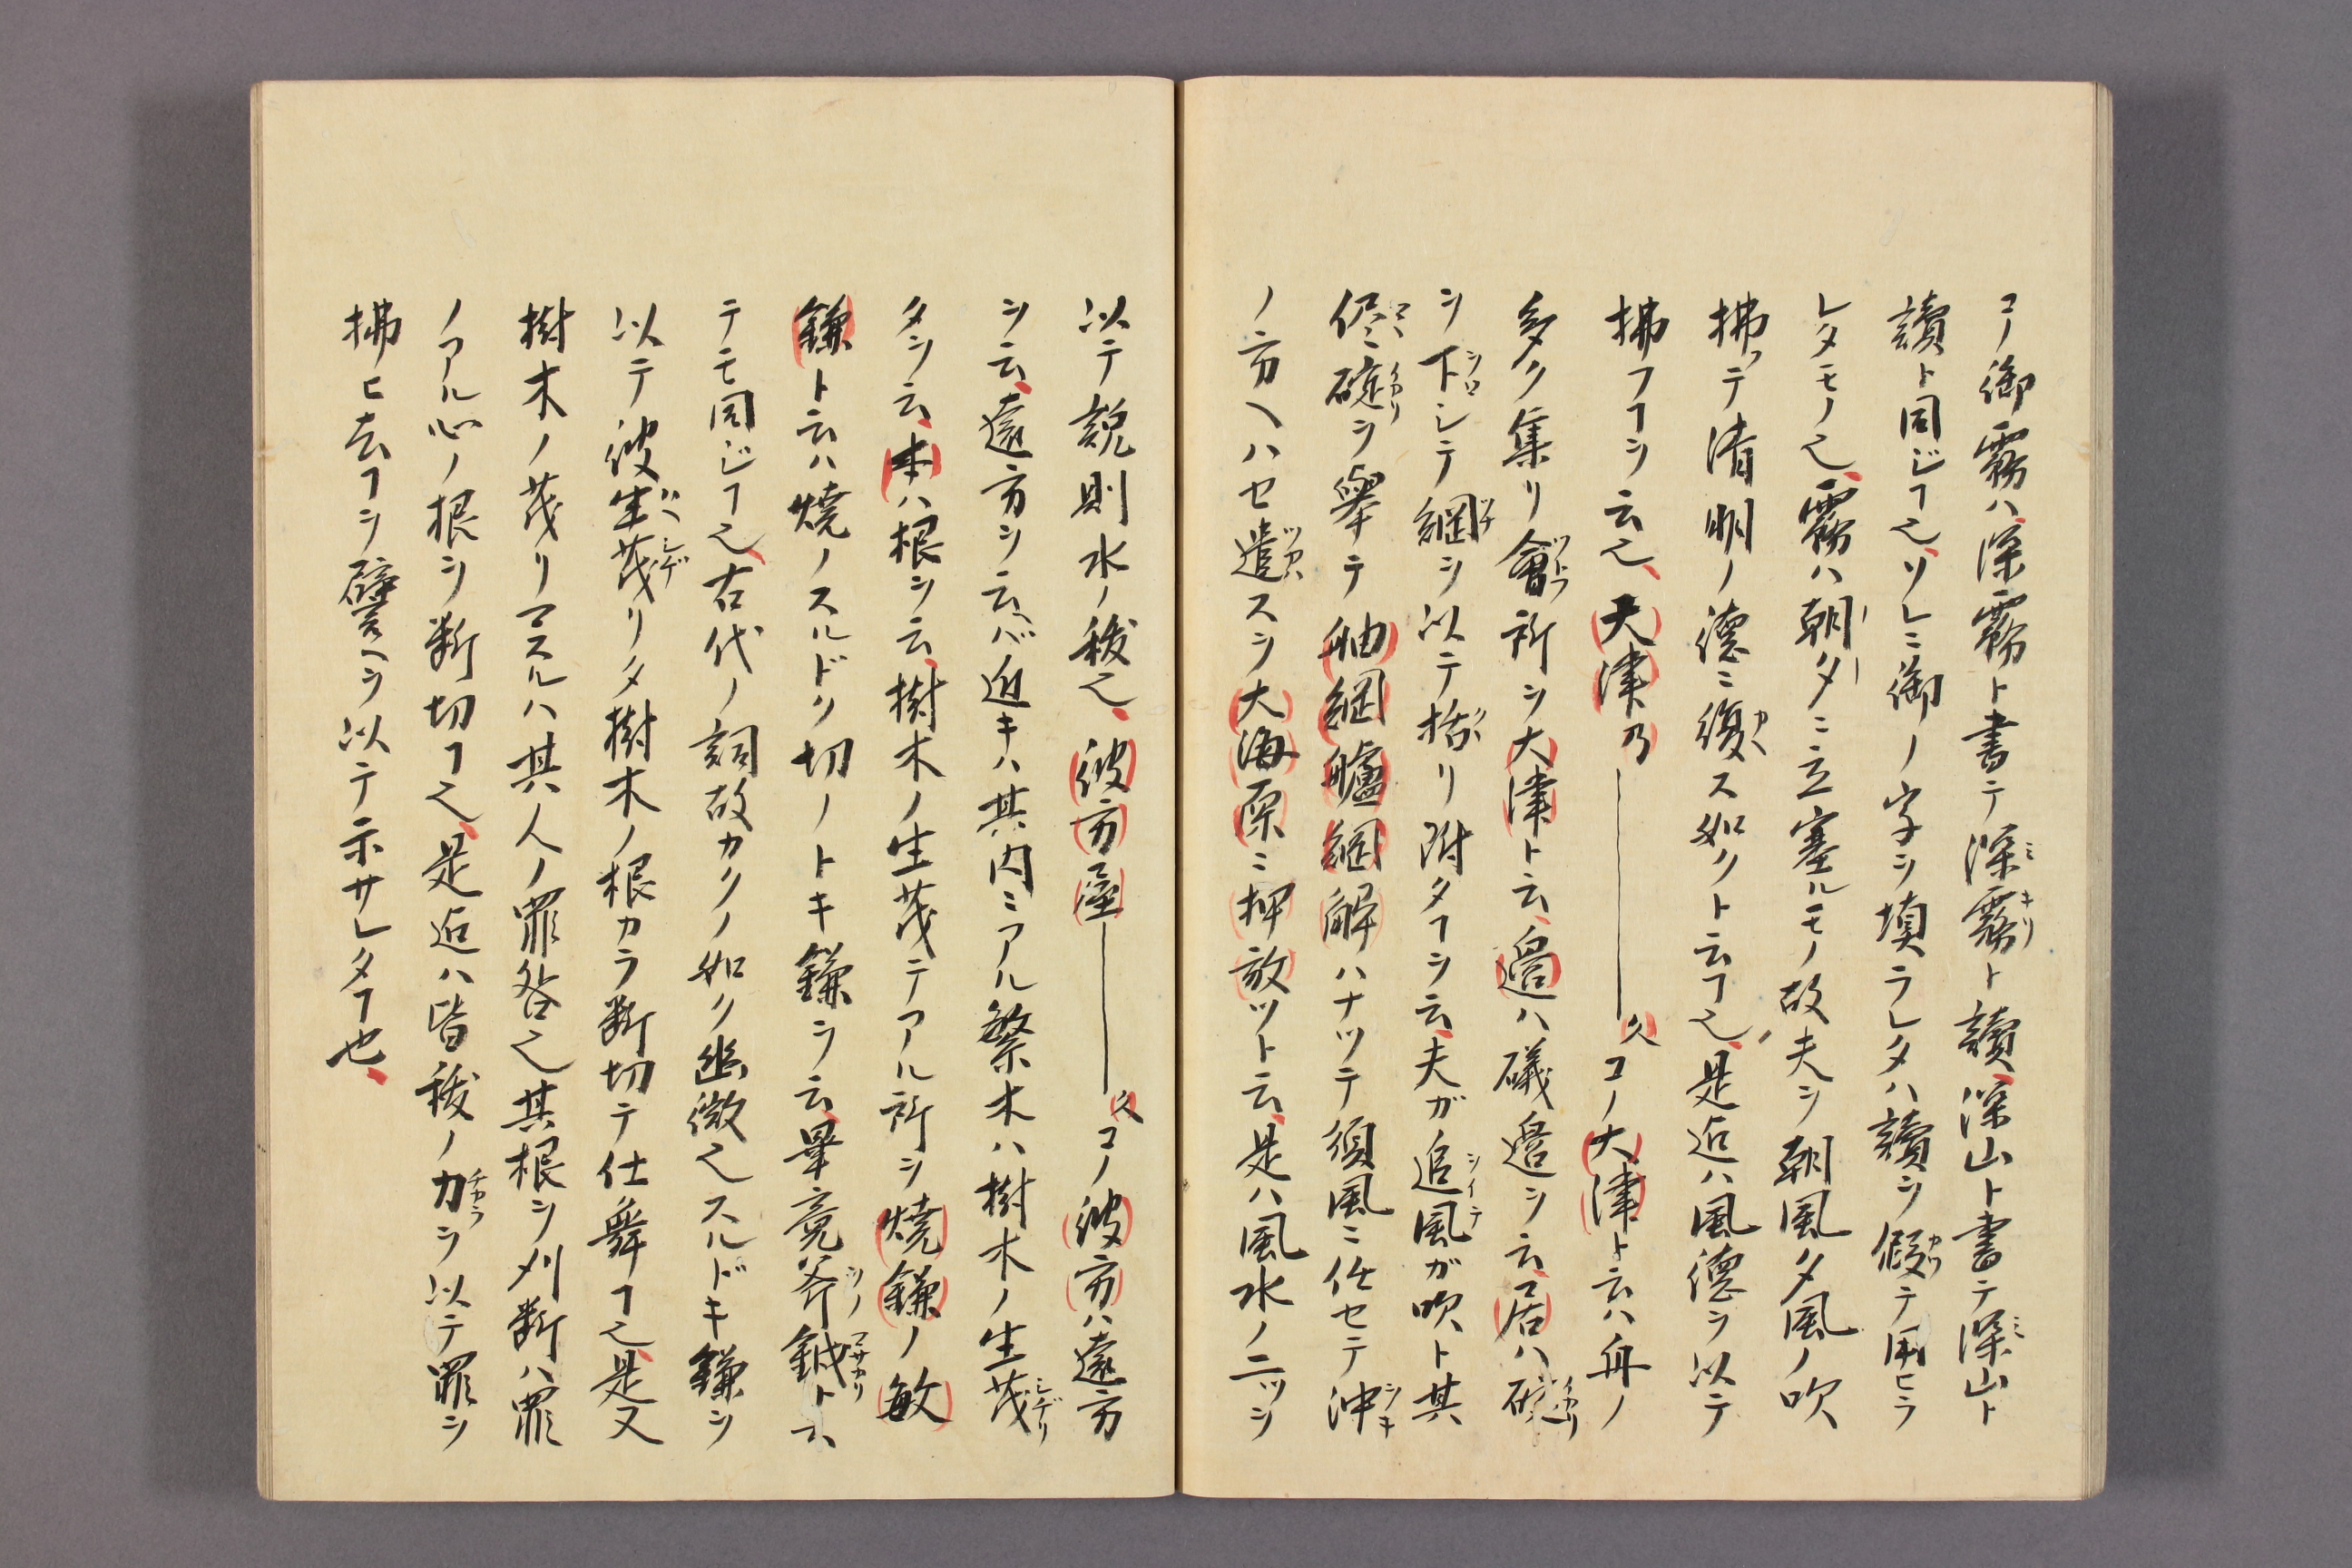 コノ御霧ハ深霧ト書テ深霧ト讀深山ト書テ深山ト
讀ト同ジヿ也ソレニ御ノ字ヲ填ラレタハ讀ヲ假テ用ヒラ
レタモノ也、霧ハ朝夕ニ立塞ルモノ故夫ヲ朝風夕風ノ吹
拂テ清明ノ德ニ復ス如クト云ヿ也、是迠ハ風德ヲ以テ
拂フヿヲ云也、大津乃――久コノ大津ト云ハ舟ノ
多ク集リ會所ヲ大津ト云、邉ハ礒邉ヲ云、居ハ碇
ヲ下シテ綱ヲ以テ括リ附タヿヲ云、夫ガ追風ガ吹ト其
侭ニ碇ヲ擧テ舳綱艫綱解ハナツテ須風ニ任セテ沖
ノ方ヘハセ遣スヲ大海原ニ押放ツト云、是ハ風水ノ二ッヲ
以テ説則水ノ祓也、彼方繁――久コノ彼方ハ遠方
ヲ云、遠方ヲ云ヘバ近キハ其内ニアル繁木ハ樹木ノ生茂
タヲ云、本ハ根ヲ云、樹木ノ生茂テアル所ヲ燒鎌ノ敏
鎌ト云ハ燒ノスルドク切ノトキ鎌ヲ云、畢竟斧鉞ト云
テモ同ジヿ也、古代ノ詞故カクノ如ク幽微也スルドキ鎌ヲ
以テ彼生茂リタ樹木ノ根カラ断切テ仕舞ヿ也、是又
樹木ノ茂リマスルハ其人ノ罪咎也其根ヲ刈断ハ罪
ノアル心ノ根ヲ断切ヿ也、是迠ハ皆祓ノ力ヲ以テ罪ヲ
拂ヒ去ヿヲ譬ヘヲ以テ示サレタヿ也、